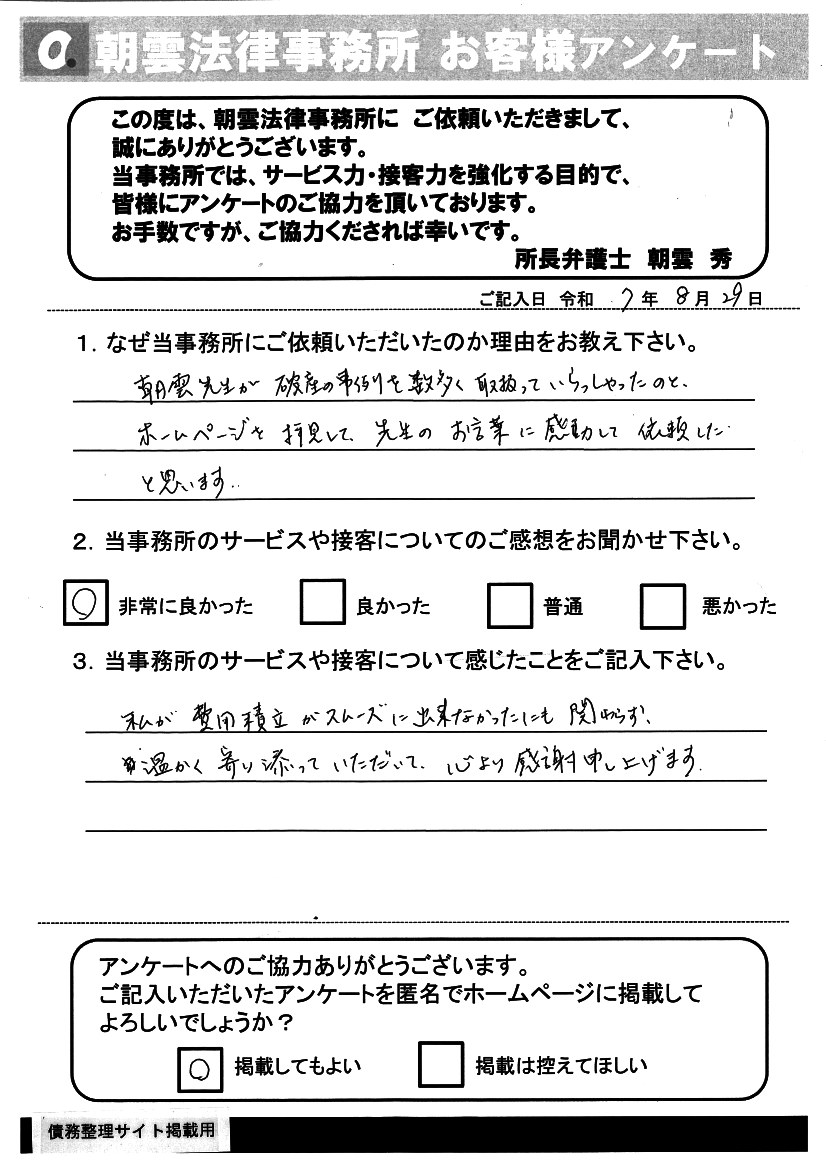 a. 朝雲法律事務所 お客様アンケート
この度は、朝雲法律事務所に ご依頼いただきまして、
誠にありがとうございます。
当事務所では、サービス力・接客力を強化する目的で、
皆様にアンケートのご協力を頂いております。
お手数ですが、ご協力くだされば幸いです。
所長弁護士 朝雲 秀
ご記入日 令和 7 年 8 月 29 日
1. なぜ当事務所にご依頼いただいたのか理由をお教え下さい。
朝雲先生が 破産の事例を数多く 取扱っていらっしゃったのと、
ホームページを 拝見して、先生の お言葉に感動して 依頼した
と思います。
2. 当事務所のサービスや接客についてのご感想をお聞かせ下さい。
○ 非常に良かった 良かった 普通 悪かった
3. 当事務所のサービスや接客について感じたことをご記入下さい。
私が 費用積立がスムーズに出来なかったにも 関わらず、
温かく 寄り添っていただいて、心より感謝申し上げます.
アンケートへのご協力ありがとうございます。
ご記入いただいたアンケートを匿名でホームページに掲載して
よろしいでしょうか？
○ 掲載してもよい 掲載は控えてほしい
債務整理サイト掲載用